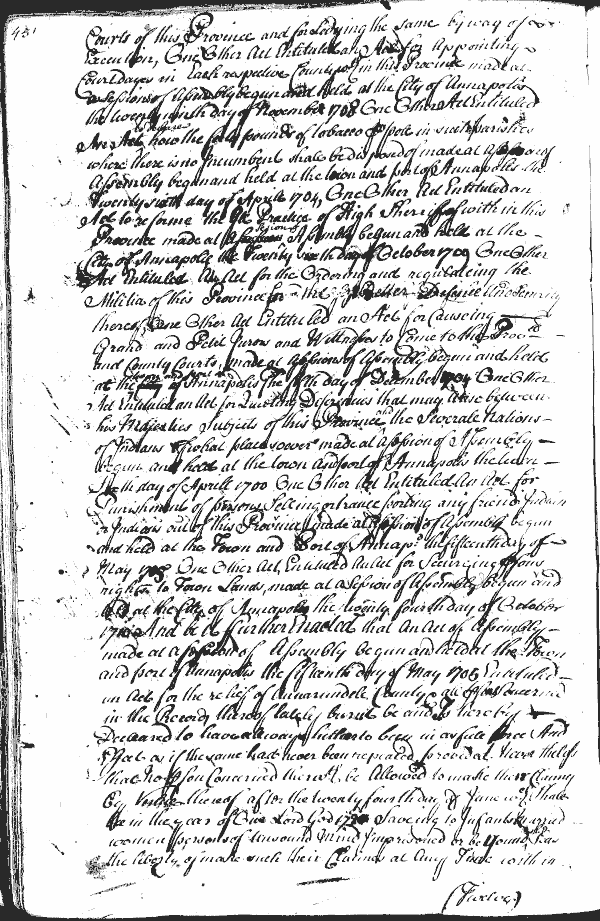 451
Courts of this Province and for Levying the same by way of
Execution, One Other Act Entituled an Act for Appointing
Court dayes in Each respective County in this Province made at
a Session of Assembly begun and held at the City of Annapolis
the twenty ninth day of November 1708 One Other Act Entituled
An Act how the fourty pounds of tobacco p pole in such parishes
where there is no Incumbent shall be disposed of made at a Session of
Assembly begun and held at the town and port of Annapolis the
Twenty sixth day of Aprill 1704, One Other Act Entituled an
Act to reforme the Practice of High Sheriffs with in this
Province made at a Session of Assembly begun and held at the
City of Annapolis the Twenty sixth day of October 1709 One Other
Act Entituled An Act for the Ordering and regulateing the
Militia of this Province for the Better Defence and Security
thereof, One Other Act Entituled an Act for Causeing
Grand and Petit Jurors and Wittnesses to Come to the Provll
and County Courts, made at a Session of Assembly begun and held
at the Annapolis the day of December 1704 One Other
Act Entituled an Act for Quietting Differences that may Arise between
his Majesties Subjects of this Province and the Severall Nations
of Indians of what place soever made at a Session of Assembly
begun and held at the town and port of Annapolis the twen
Sixth day of Aprill 1700 One Other Act Entituled An Act for
Punishment of persons Selling or transporting any friend Indian
or Indians out of this Province made at a Session of Assembly begun
and held at the Town and Port of Annaps. the fifteenth day of
May 1705 One Other Act, Entituled An Act for Secureing Persons
rights to Town Lands, made at a Session of Assembly begun and
held at the City of Annapolis the twenty fourth day of October
And be it further Enacted that An Act of Assembly
made at a Session of Assembly begun and held at the Town
and port of Annapolis the fifteenth day of May 1705 Entituled
an Act for the releife of Annarundele County all psons Concerned
in the Records thereof lately burnt be and is hereby
Declared to have always hitherto been in as full force And
Effect as if the same had never been repealed provided Nevertheless
that no pson Concerned therewth. be Allowed to make their Claimes
By Virtue thereof after the twenty fourth day of June wch. Shall
be in the year of Our Lord God Saveing to Infants married
women psons of Unsound Mind Imprisoned or beyond Seas
the liberty of make such their Claimes at Any Time with in
(Twelve)